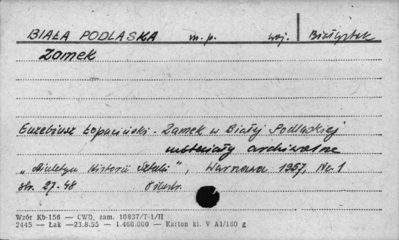 BIAŁA PODLASKA m.p. woj. Białystok
Zamek
Euzebiusz Łopaciński - Zamek w Białej Podlaskiej
materiały archiwalne
„Biuletyn Historii Sztuki", Warszawa 1957, Nr. 1
str. 27-48 8 ilustr.
Wzór Kb-156 — CWD, zam. 10837/T-1/II
2445 — Łak —23.8.55 — 1.460.000 — Karton kl. V A1/180 g